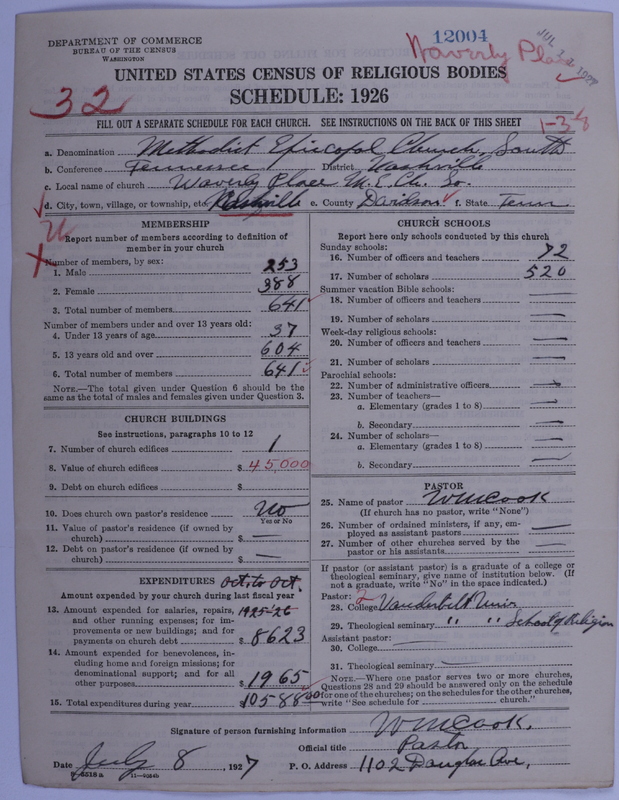 DEPARTMENT OF COMMERCE
BUREAU OF THE CENSUS
WASHINGTON
12004
Waverly Place
UNITED STATES CENSUS OF RELIGIOUS BODIES
SCHEDULE: 1926
32
1-38
FILL OUT A SEPARATE SCHEDULE FOR EACH CHURCH. SEE INSTRUCTIONS ON THE BACK OF THIS SHEET
a. Denomination Methodist Episcopal Church, South
b. Conference Tennessee District Nashville
c. Local name of church Waverly Place M.E. Ch. So.
d. City, town, village, or township, etc. Nashville e. County Davidson f. State Tenn
MEMBERSHIP
Report number of members according to definition of member in your church
Number of members, by sex:
1. Male 253
2. Female 388
3. Total number of members 641
Number of members under and over 13 years old:
4. Under 13 years of age 37
5. 13 years old and over 604
6. Total number of members 641
NOTE.—The total given under Question 6 should be the
same as the total of males and females given under Question 3.
CHURCH BUILDINGS
See instructions, paragraphs 10 to 12
7. Number of church edifices 1
8. Value of church edifices $ 45,000
9. Debt on church edifices $
10. Does church own pastor's residence No
Yes or No
11. Value of pastor's residence (if owned by
church) $ —
12. Debt on pastor's residence (if owned by
church) $ —
EXPENDITURES Oct. to Oct.
Amount expended by your church during last fiscal year
1925-26
13. Amount expended for salaries, repairs,
and other running expenses; for im-
provements or new buildings; and for
payments on church debt $ 8623
14. Amount expended for benevolences, in-
cluding home and foreign missions; for
denominational support; and for all
other purposes $ 1965
15. Total expenditures during year $ 10588 00
CHURCH SCHOOLS
Report here only schools conducted by this church
Sunday schools:
16. Number of officers and teachers 72
17. Number of scholars 520
Summer vacation Bible schools:
18. Number of officers and teachers —
19. Number of scholars —
Week-day religious schools:
20. Number of officers and teachers —
21. Number of scholars —
Parochial schools:
22. Number of administrative officers —
23. Number of teachers—
a. Elementary (grades 1 to 8) —
b. Secondary —
24. Number of scholars—
a. Elementary (grades 1 to 8) —
b. Secondary —
PASTOR
25. Name of pastor W M Cook
(If church has no pastor, write "None")
26. Number of ordained ministers, if any, em-
ployed as assistant pastors —
27. Number of other churches served by the
pastor or his assistants —
If pastor (or assistant pastor) is a graduate of a college or
theological seminary, give name of institution below. (If
not a graduate, write "No" in the space indicated.)
Pastor: 2
28. College Vanderbilt Univ
29. Theological seminary " " School of Religion
Assistant pastor:
30. College —
31. Theological seminary —
NOTE.—Where one pastor serves two or more churches,
Questions 28 and 29 should be answered only on the schedule
for one of the churches; on the schedules for the other churches,
write "See schedule for church."
Signature of person furnishing information W M Cook.
Official title Pastor
Date July 8, 1927 P. O. Address 1102 Douglas Ave,